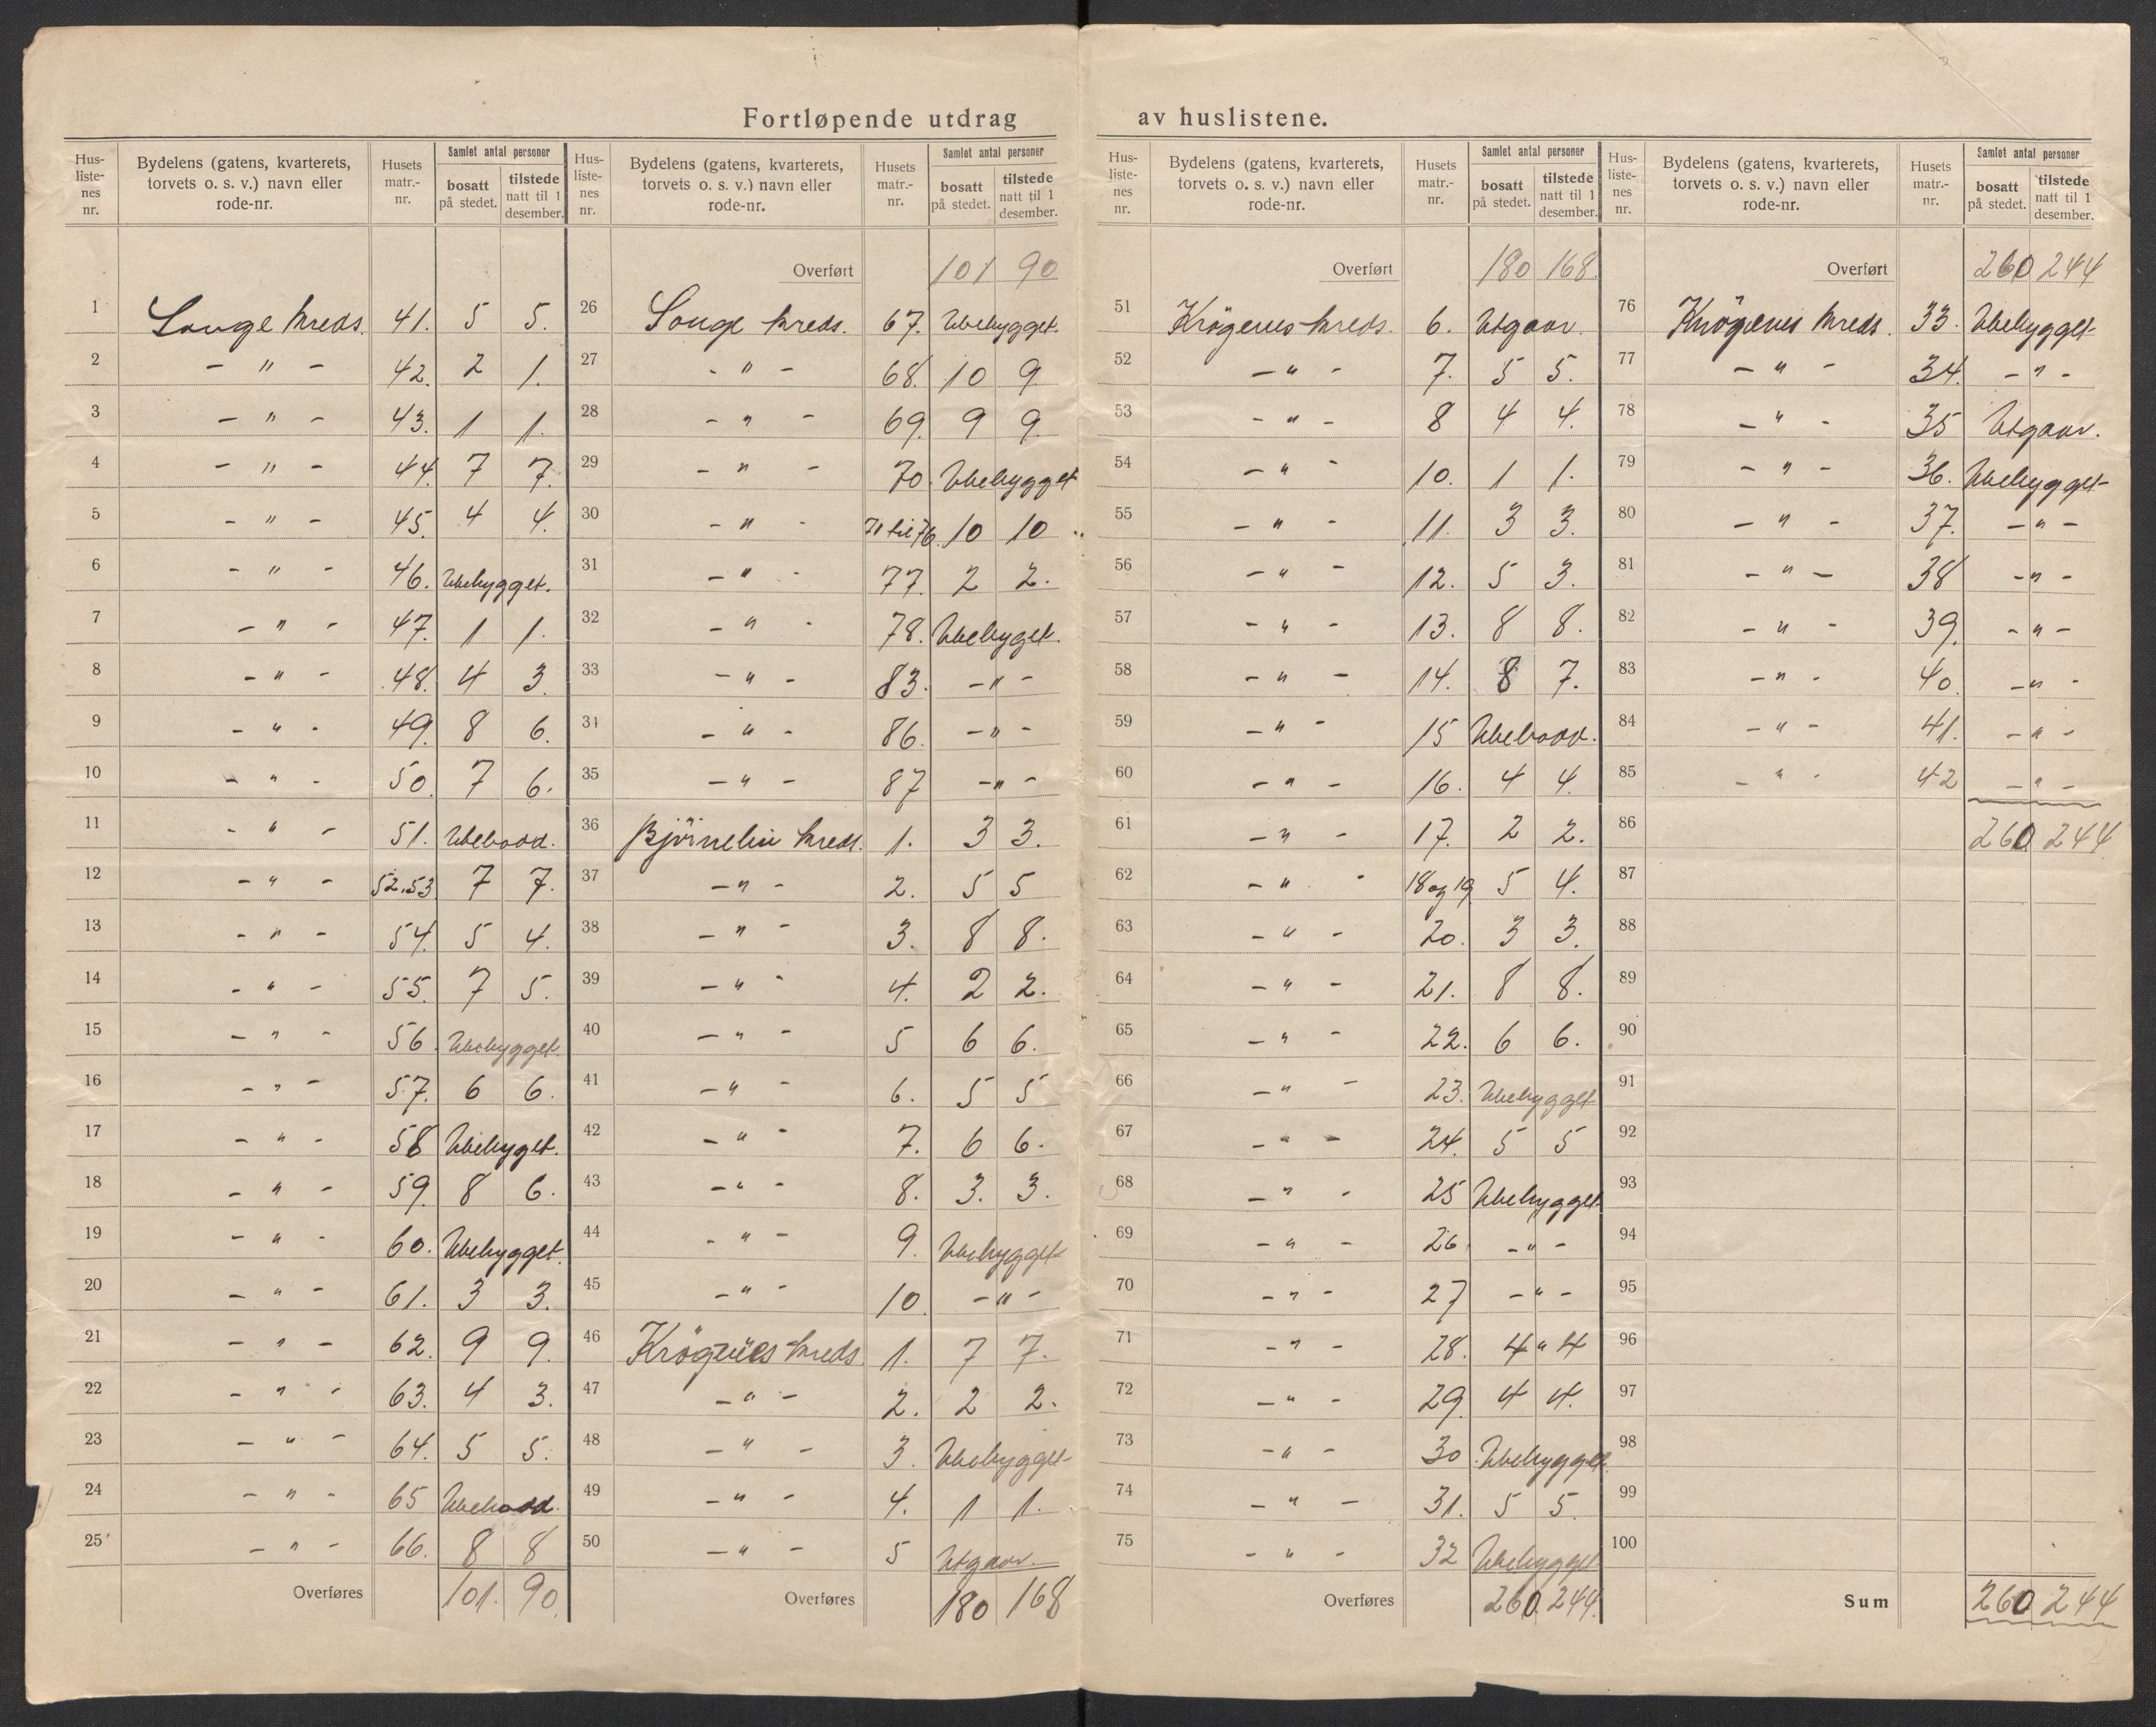 Fortløpende utdrag av huslistene.
Hus-listenes nr. Bydelens (gatens, kvarterets, torvets o. s. v.) navn eller rode-nr. Husets matr.-nr. Samlet antal personer bosatt på stedet. tilstede natt til 1 desember.
1 Songe kreds. 41. 5 5.
2 - " - 42. 2 1.
3 - " - 43. 1 1.
4 - " - 44. 7 7.
5 - " - 45. 4 4.
6 - " - 46. Ubebygget.
7 - " - 47. 1 1.
8 - " - 48. 4 3.
9 - " - 49. 8 6.
10 - " - 50. 7 6.
11 - " - 51. Ubebodd.
12 - " - 52.53 7 7.
13 - " - 54. 5 4.
14 - " - 55. 7 5.
15 - " - 56. Ubebygget
16 - " - 57. 6 6.
17 - " - 58 Ubebyget.
18 - " - 59. 8 6.
19 - " - 60. Ubebygget.
20 - " - 61. 3 3.
21 - " - 62. 9 9.
22 - " - 63. 4 3.
23 - " - 64. 5 5.
24 - " - 65 Ubebodd.
25 - " - 66. 8 8
Overføres 101. 90.
Hus-listenes nr. Bydelens (gatens, kvarterets, torvets o. s. v.) navn eller rode-nr. Husets matr.-nr. Samlet antal personer bosatt på stedet. tilstede natt til 1 desember.
Overført 101 90
26 Songe kreds. 67. Ubebygget.
27 - " - 68. 10 9.
28 - " - 69. 9 9.
29 - " - 70. Ubebygget
30 - " - 71 til 76. 10 10
31 - " - 77. 2 2.
32 - " - 78. Ubebyget.
33 - " - 83. - " -
34 - " - 86. - " -
35 - " - 87 - " -
36 Bjørnebu kreds. 1. 3 3.
37 - " - 2. 5 5
38 - " - 3. 8 8.
39 - " - 4. 2 2.
40 - " - 5 6 6.
41 - " - 6. 5 5
42 - " - 7. 6 6.
43 - " - 8. 3. 3.
44 - " - 9. Ubebygget
45 - " - 10. - " -
46 Krögenes kreds 1. 7 7.
47 - " - 2. 2 2.
48 - " - 3. Ubebygget
49 - " - 4. 1 1.
50 - " - 5 Utgaar.
Overføres 180 168
Hus-listenes nr. Bydelens (gatens, kvarterets, torvets o. s. v.) navn eller rode-nr. Husets matr.-nr. Samlet antal personer bosatt på stedet. tilstede natt til 1 desember.
Overført 180 168.
51 Krögenes kreds. 6. Utgaar.
52 - " - 7. 5 5.
53 - " - 8 4 4.
54 - " - 10. 1 1.
55 - " - 11. 3 3.
56 - " - 12. 5 3.
57 - " - 13. 8 8.
58 - " - 14. 8 7.
59 - " - 15 Ubebodd.
60 - " - 16. 4 4.
61 - " - 17. 2 2.
62 - " - 18 og 19 5 4.
63 - " - 20. 3 3.
64 - " - 21. 8 8.
65 - " - 22. 6 6.
66 - " - 23. Ubebygget
67 - " - 24. 5 5
68 - " - 25 Ubebygget
69 - " - 26 - " -
70 - " - 27 - " -
71 - " - 28. 4 " 4
72 - " - 29. 4 4.
73 - " - 30 Ubebygget.
74 - " - 31. 5 5.
75 - " - 32 Ubebygget
Overføres 260. 244.
Hus-listenes nr. Bydelens (gatens, kvarterets, torvets o. s. v.) navn eller rode-nr. Husets matr.-nr. Samlet antal personer bosatt på stedet. tilstede natt til 1 desember.
Overført 260. 244
76 Krögenes kreds. 33. Ubebygget
77 - " - 34. - " -
78 - " - 35 Utgaar.
79 - " - 36. Ubebygget
80 - " - 37. - " -
81 - " - 38 - " -
82 - " - 39. - " -
83 - " - 40. - " -
84 - " - 41. - " -
85 - " - 42 - " -
86 260. 244
87
88
89
90
91
92
93
94
95
96
97
98
99
100
Sum 260. 244